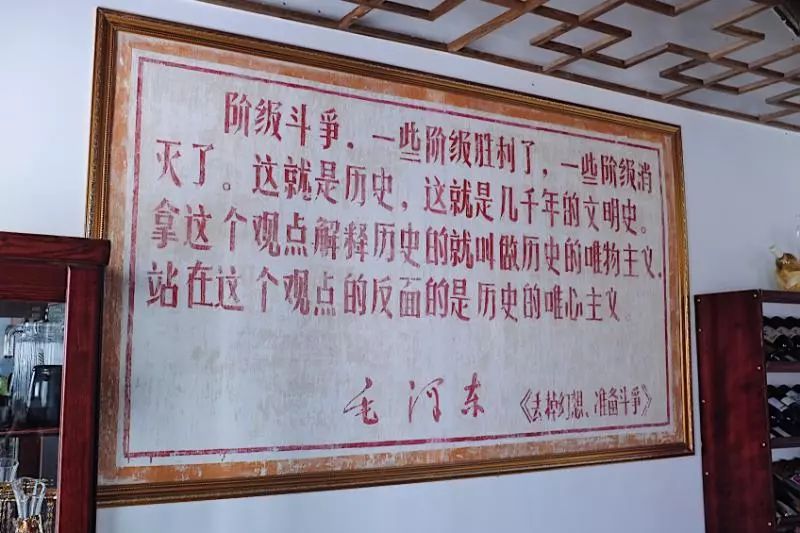 阶级斗爭，一些阶级胜利了，一些阶级消
灭了。这就是历史，这就是几千年的文明史。
拿这个观点解释历史的就叫做历史的唯物主义，
站在这个观点的反面的是历史的唯心主义。
毛泽东 《去掉幻想、准备斗爭》